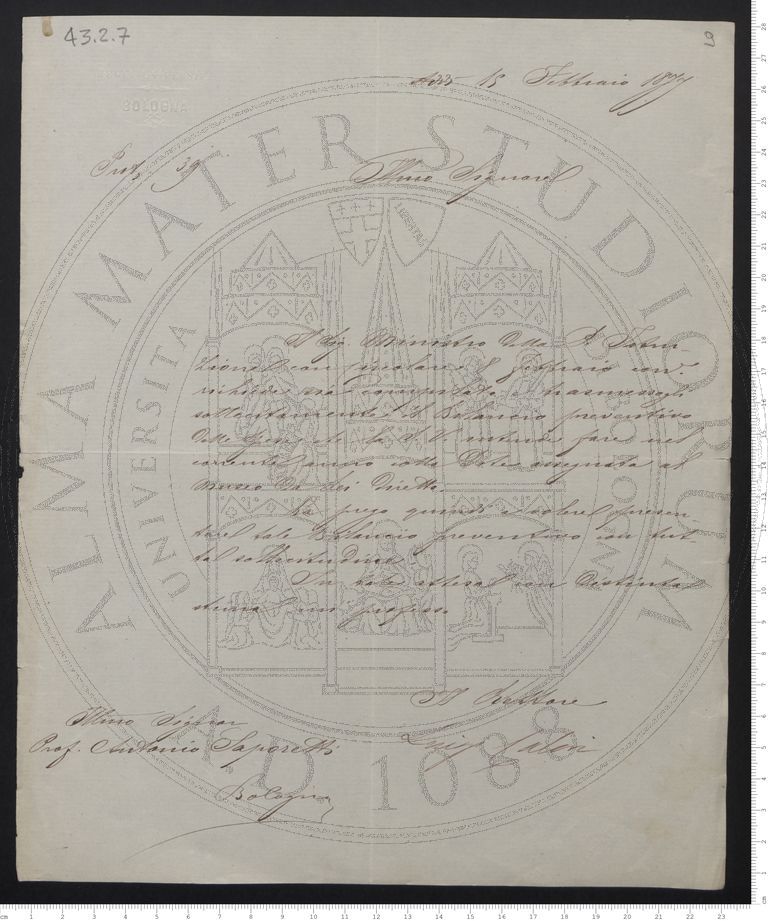 43.2.7
9
BOLOGNA
Addì 15 Febbraio 1877
Prot. 39
Illmo Signore
Il Sig. Ministro della P. Istru-
zione con circolare 8 Febbraio cor.
richiede sia compilato e trasmesso
sollecitamente il Bilancio preventivo
delle spese che la S. V. intende fare nel
corrente anno colla Dote assegnata al
Museo da Lei diretto.
La prego quindi a volere presen-
tare tale Bilancio preventivo con tut-
ta sollecitudine.
In tale attesa con distinta
stima mi professo
Il Rettore
Luigi
Illmo Signor
Prof. Antonio Saporetti
Bologna
ALMA MATER STUDIORUM
UNIVERSITA DI BOLOGNA
A.D. 1088